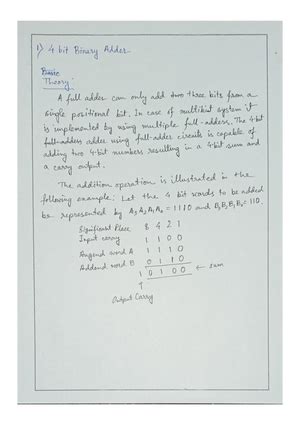 1) 4 bit Binary Adder
Basic
Theory:
A full adder can only add two three bits from a
single positional bit. In case of multibit system it
is implemented by using multiple full-adders. The 4 bit
full-adders adder using full-adder circuits is capable of
adding two 4-bit numbers resulting in a 4 bit sum and
a carry output.
The addition operation is illustrated in the
following example: Let the 4 bit words to be added
be represented by A3A2A1A0 = 1110 and B3B2B1B0 = 0110.
Significant Place 8 4 2 1
Input carry 1 1 0 0
Augend word A 1 1 1 0
Addend word B 0 1 1 0
1 0 1 0 0 ← sum
↑
Output Carry